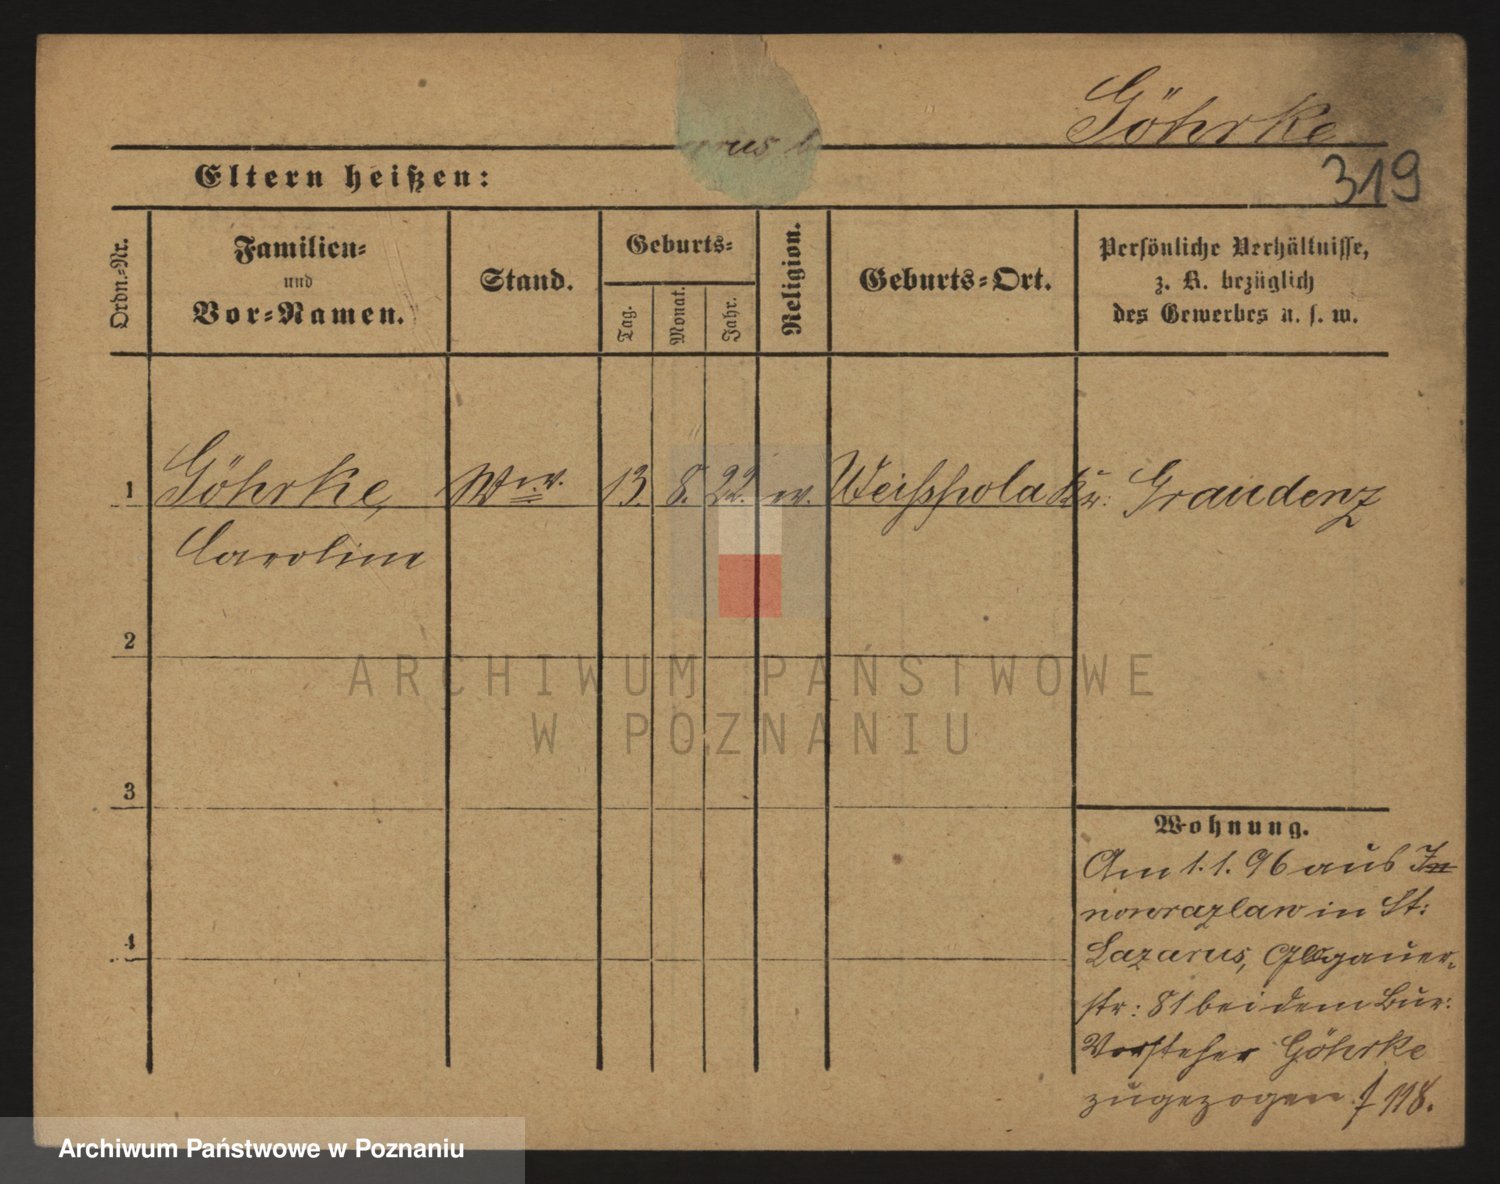 Göhrke
319
Eltern heißen:
Ordn.-Nr.
Familien-
und
Vor-Namen.
Stand.
Geburts-
Tag.
Monat.
Jahr.
Religion.
Geburts-Ort.
Persönliche Verhältnisse,
z. B. bezüglich
des Gewerbes u. s. w.
1 Göhrke, Ww. 13. 8. 22. ev. Kr: Graudenz
Caroline
2
3
4
Wohnung.
Am 1. 1. 96 aus In
nowrazlaw in St:
Lazarus, Glogauer-
str: 81 bei dem Bur:
Vorsteher Göhrke
zugezogen 118.
ARCHIWUM PAŃSTWOWE
W POZNANIU
Archiwum Państwowe w Poznaniu